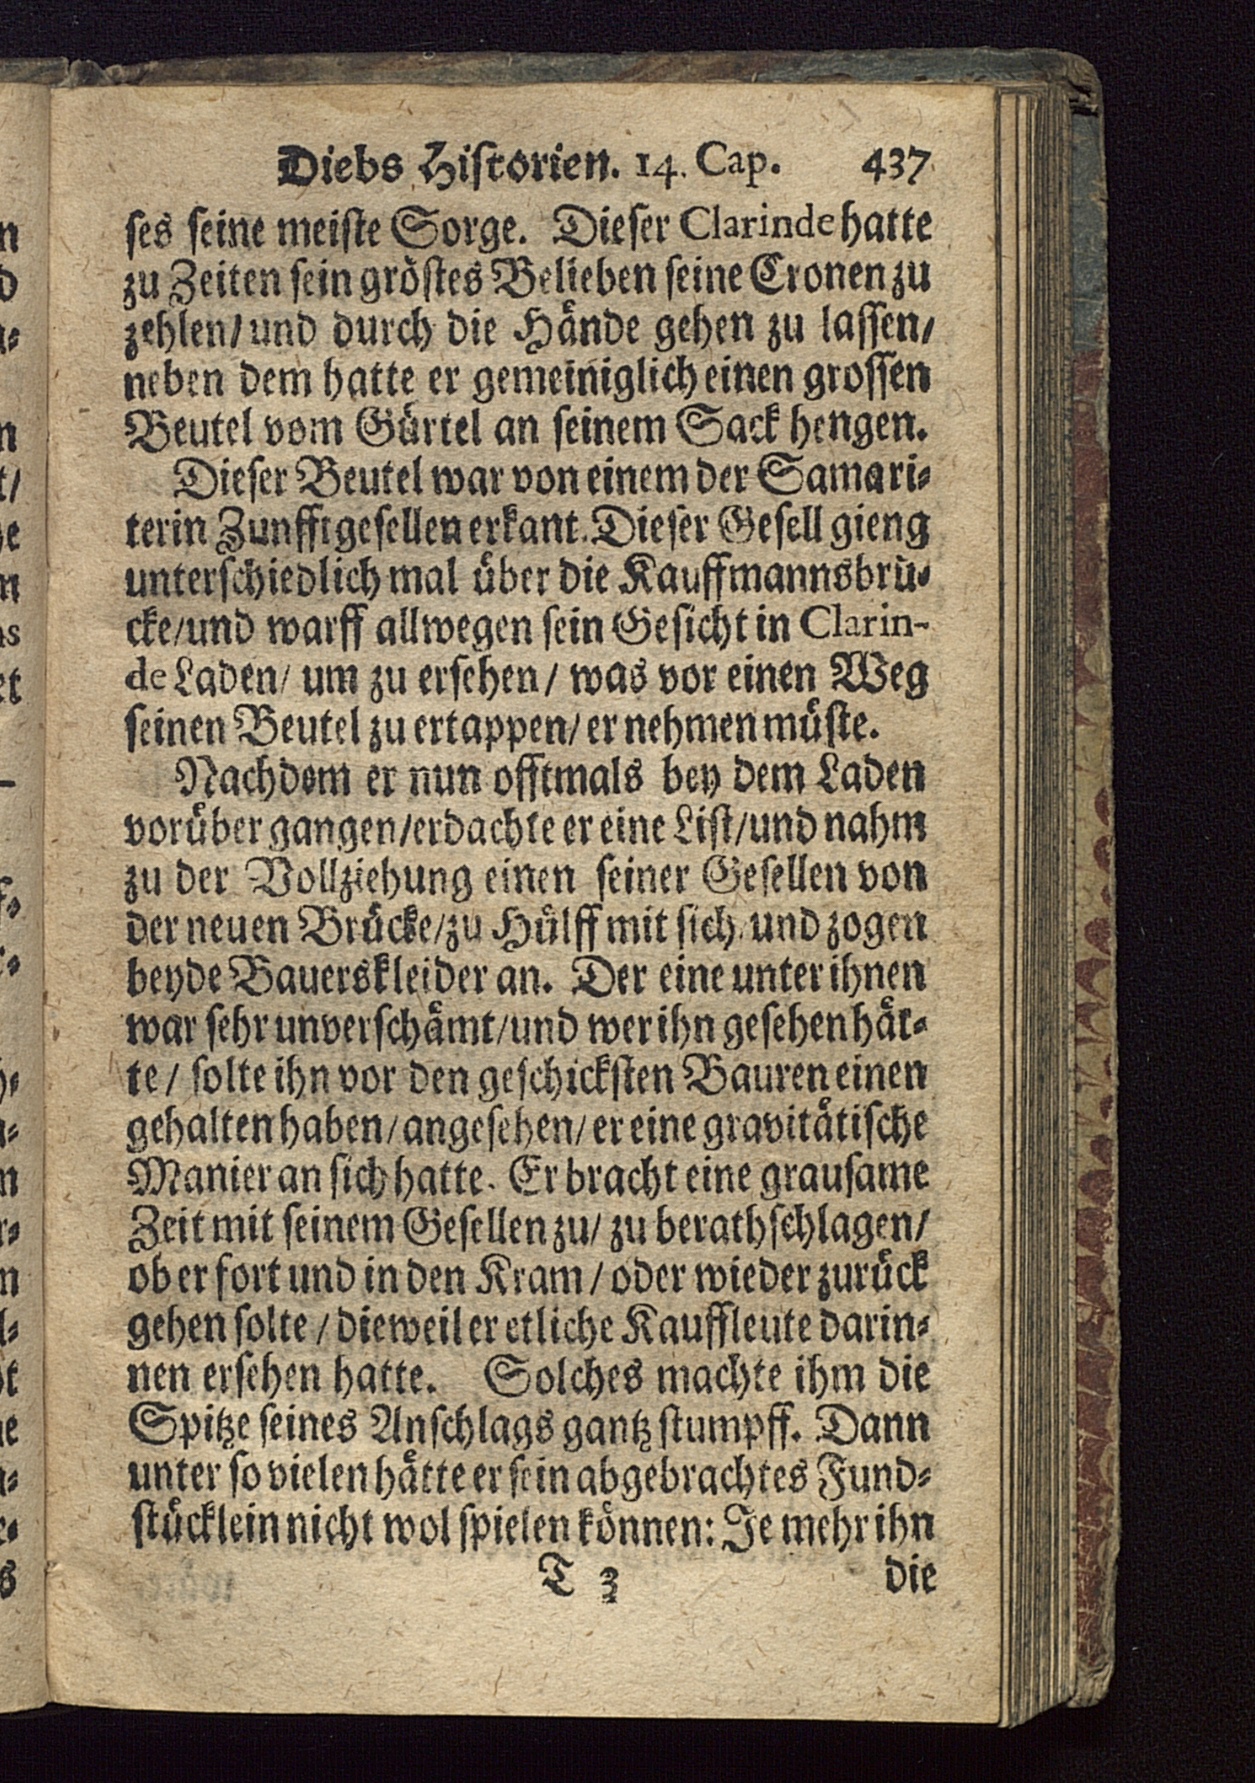 Diebs Historien. 14. Cap. 437
ses seine meiste Sorge. Dieser Clarinde hatte
zu Zeiten sein gröstes Belieben seine Cronen zu
zehlen/ und durch die Hände gehen zu lassen/
neben dem hatte er gemeiniglich einen grossen
Beutel vom Gürtel an seinem Sack hengen.
Dieser Beutel war von einem der Samari-
terin Zunfftgesellen erkant. Dieser Gesell gieng
unterschiedlich mal über die Kauffmannsbrü-
cke/ und warff allwegen sein Gesicht in Clarin-
de Laden/ um zu ersehen/ was vor einen Weg
seinen Beutel zu ertappen/ er nehmen müste.
Nachdem er nun offtmals bey dem Laden
vorüber gangen/ erdachte er eine List/ und nahm
zu der Vollziehung einen seiner Gesellen von
der neuen Brücke/ zu Hülff mit sich/ und zogen
beyde Bauerskleider an. Der eine unter ihnen
war sehr unverschämt/ und wer ihn gesehen hät-
te/ solte ihn vor den geschicksten Bauren einen
gehalten haben/ angesehen/ er eine gravitätische
Manier an sich hatte. Er bracht eine grausame
Zeit mit seinem Gesellen zu/ zu berathschlagen/
ob er fort und in den Kram/ oder wieder zurück
gehen solte/ dieweil er etliche Kauffleute darin-
nen ersehen hatte. Solches machte ihm die
Spitze seines Anschlags gantz stumpff. Dann
unter so vielen hätte er sein abgebrachtes Fund-
stücklein nicht wol spielen können: Je mehr ihn
T 3 die